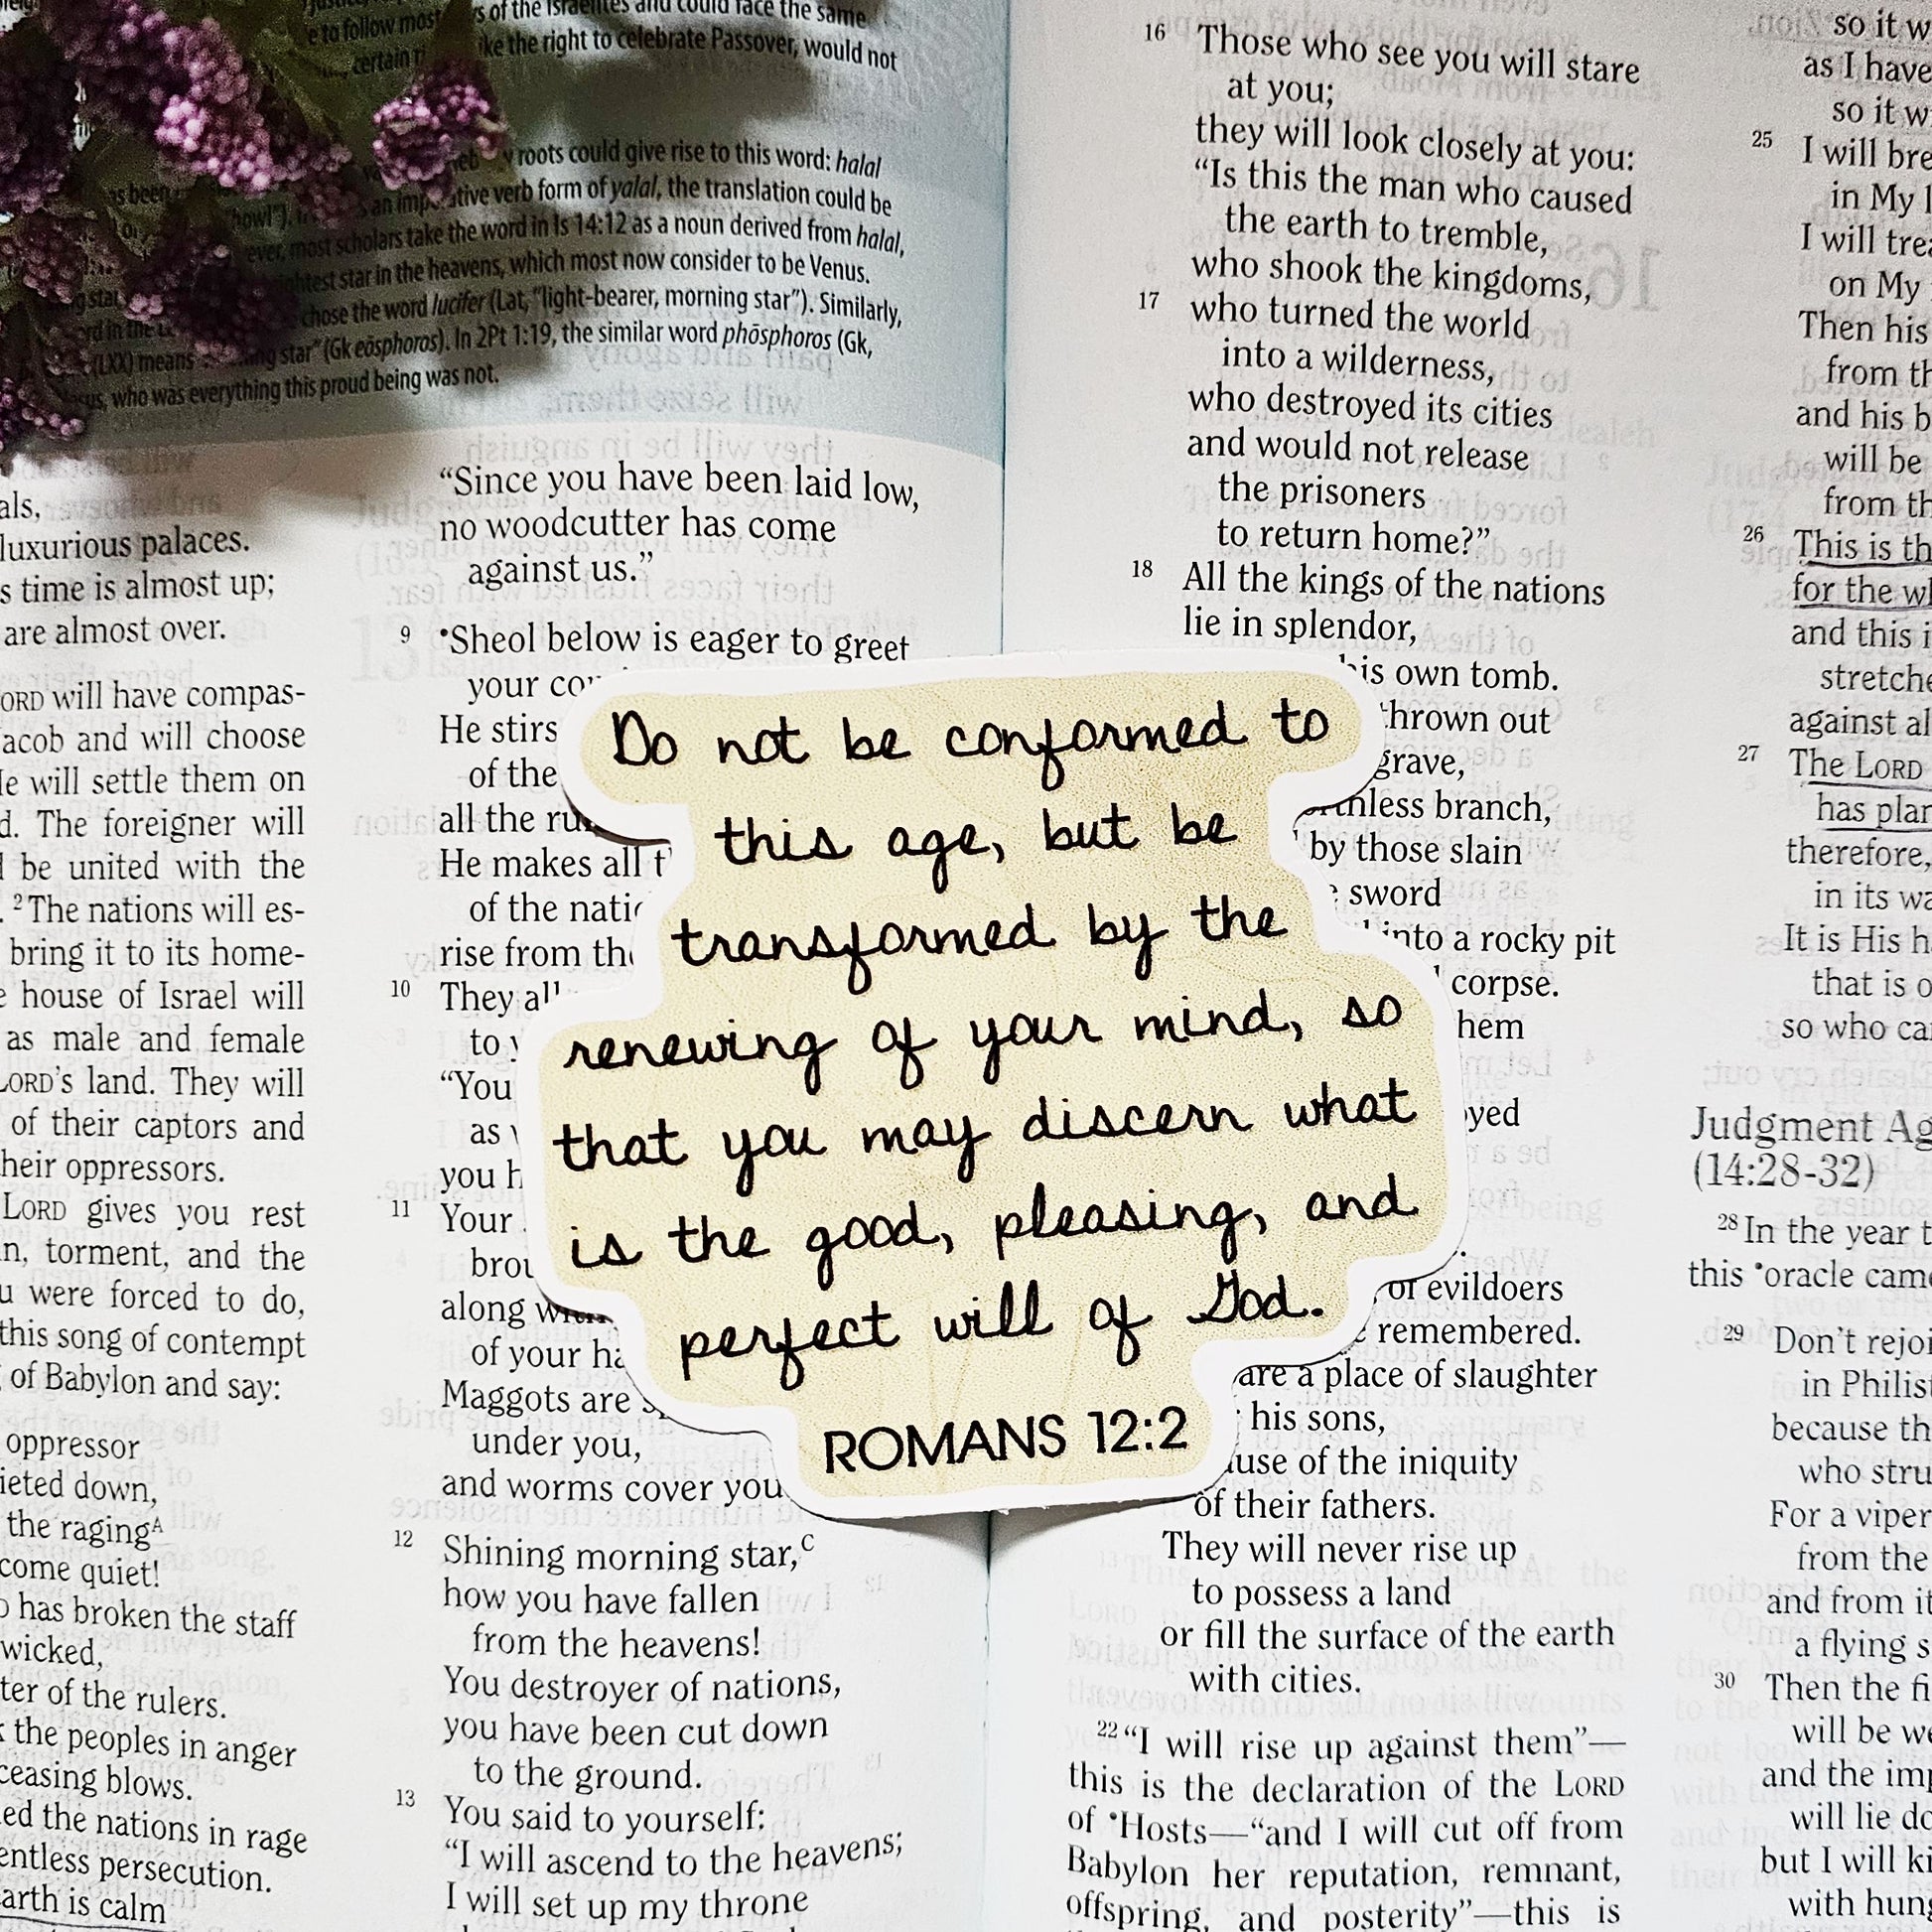 s of the Israelites and could face the same
e to follow most
certain ri ke the right to celebrate Passover, would not
roots could give rise to this word: halal
an imperative verb form of yalal, the translation could be
howl").
ever, most scholars take the word in Is 14:12 as a noun derived from halal,
ghtest star in the heavens, which most now consider to be Venus.
chose the word lucifer (Lat, "light-bearer, morning star"). Similarly,
(LXX) means star" (Gk eōsphoros). In 2Pt 1:19, the similar word phōsphoros (Gk,
sus, who was everything this proud being was not.
als,
luxurious palaces.
s time is almost up;
are almost over.
ORD will have compas-
acob and will choose
He will settle them on
d. The foreigner will
d be united with the
. 2 The nations will es-
bring it to its home-
e house of Israel will
as male and female
LORD's land. They will
of their captors and
heir oppressors.
LORD gives you rest
n, torment, and the
u were forced to do,
this song of contempt
g of Babylon and say:
oppressor
ieted down,
the ragingA
come quiet!
o has broken the staff
wicked,
ter of the rulers.
k the peoples in anger
ceasing blows.
ed the nations in rage
entless persecution.
earth is calm
"Since you have been laid low,
no woodcutter has come
against us."
9 •Sheol below is eager to greet
your co
He stirs
of the
all the ru
He makes all t
of the natio
rise from the
10 They all
to y
"You
as
you h
11 Your
brou
along with
of your ha
Maggots are s
under you,
and worms cover you.
12 Shining morning star,C
how you have fallen
from the heavens!
You destroyer of nations,
you have been cut down
to the ground.
13 You said to yourself:
"I will ascend to the heavens;
I will set up my throne
Do not be conformed to
this age, but be
transformed by the
renewing of your mind, so
that you may discern what
is the good, pleasing, and
perfect will of God.
ROMANS 12:2
16 Those who see you will stare
at you;
they will look closely at you:
"Is this the man who caused
the earth to tremble,
who shook the kingdoms,
17 who turned the world
into a wilderness,
who destroyed its cities
and would not release
the prisoners
to return home?"
18 All the kings of the nations
lie in splendor,
his own tomb.
thrown out
grave,
orthless branch,
by those slain
e sword
into a rocky pit
corpse.
hem
oyed
of evildoers
e remembered.
are a place of slaughter
his sons,
ause of the iniquity
of their fathers.
They will never rise up
to possess a land
or fill the surface of the earth
with cities.
22 "I will rise up against them"—
this is the declaration of the LORD
of •Hosts—"and I will cut off from
Babylon her reputation, remnant,
offspring, and posterity"—this is
so it w
as I have
so it w
25 I will bre
in My l
I will trea
on My
Then his
from th
and his b
will be
from th
26 This is th
for the wh
and this i
stretche
against al
27 The LORD
has plan
therefore,
in its wa
It is His h
that is o
so who ca
Judgment Ag
(14:28-32)
28 In the year t
this •oracle came
29 Don't rejoi
in Philist
because th
who stru
For a viper
from the
and from it
a flying s
30 Then the fi
will be we
and the imp
will lie do
but I will ki
with hung